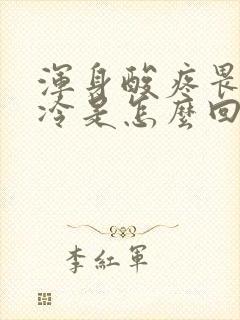 渾身酸疼畏
冷是怎麼回
李紅軍